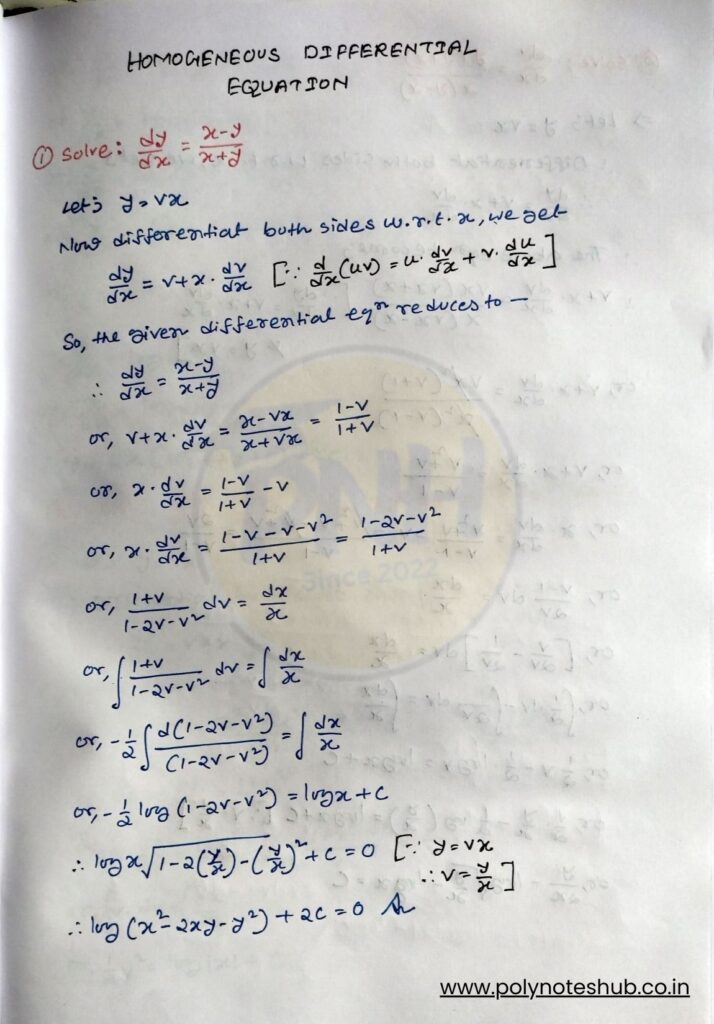 HOMOGENEOUS DIFFERENTIAL
EQUATION
① Solve: dy/dx = x-y/x+y
Let's y = vx
Now differentiat both sides w.r.t. x, we get
dy/dx = v+x · dv/dx [∵ d/dx (uv) = u · dv/dx + v · du/dx]
So, the given differential eqⁿ reduces to —
∴ dy/dx = x-y/x+y
or, v+x · dv/dx = x-vx/x+vx = 1-v/1+v
or, x · dv/dx = 1-v/1+v - v
or, x · dv/dx = 1-v-v-v²/1+v = 1-2v-v²/1+v
or, 1+v/1-2v-v² dv = dx/x
or, ∫ 1+v/1-2v-v² dv = ∫ dx/x
or, -1/2 ∫ d(1-2v-v²)/(1-2v-v²) = ∫ dx/x
or, -1/2 log (1-2v-v²) = logx + c
∴ log x √1-2(y/x)-(y/x)² + c = 0 [∵ y = vx
∴ v = y/x]
∴ log (x²-2xy-y²) + 2c = 0
PNH
Since 2022
www.polynoteshub.co.in